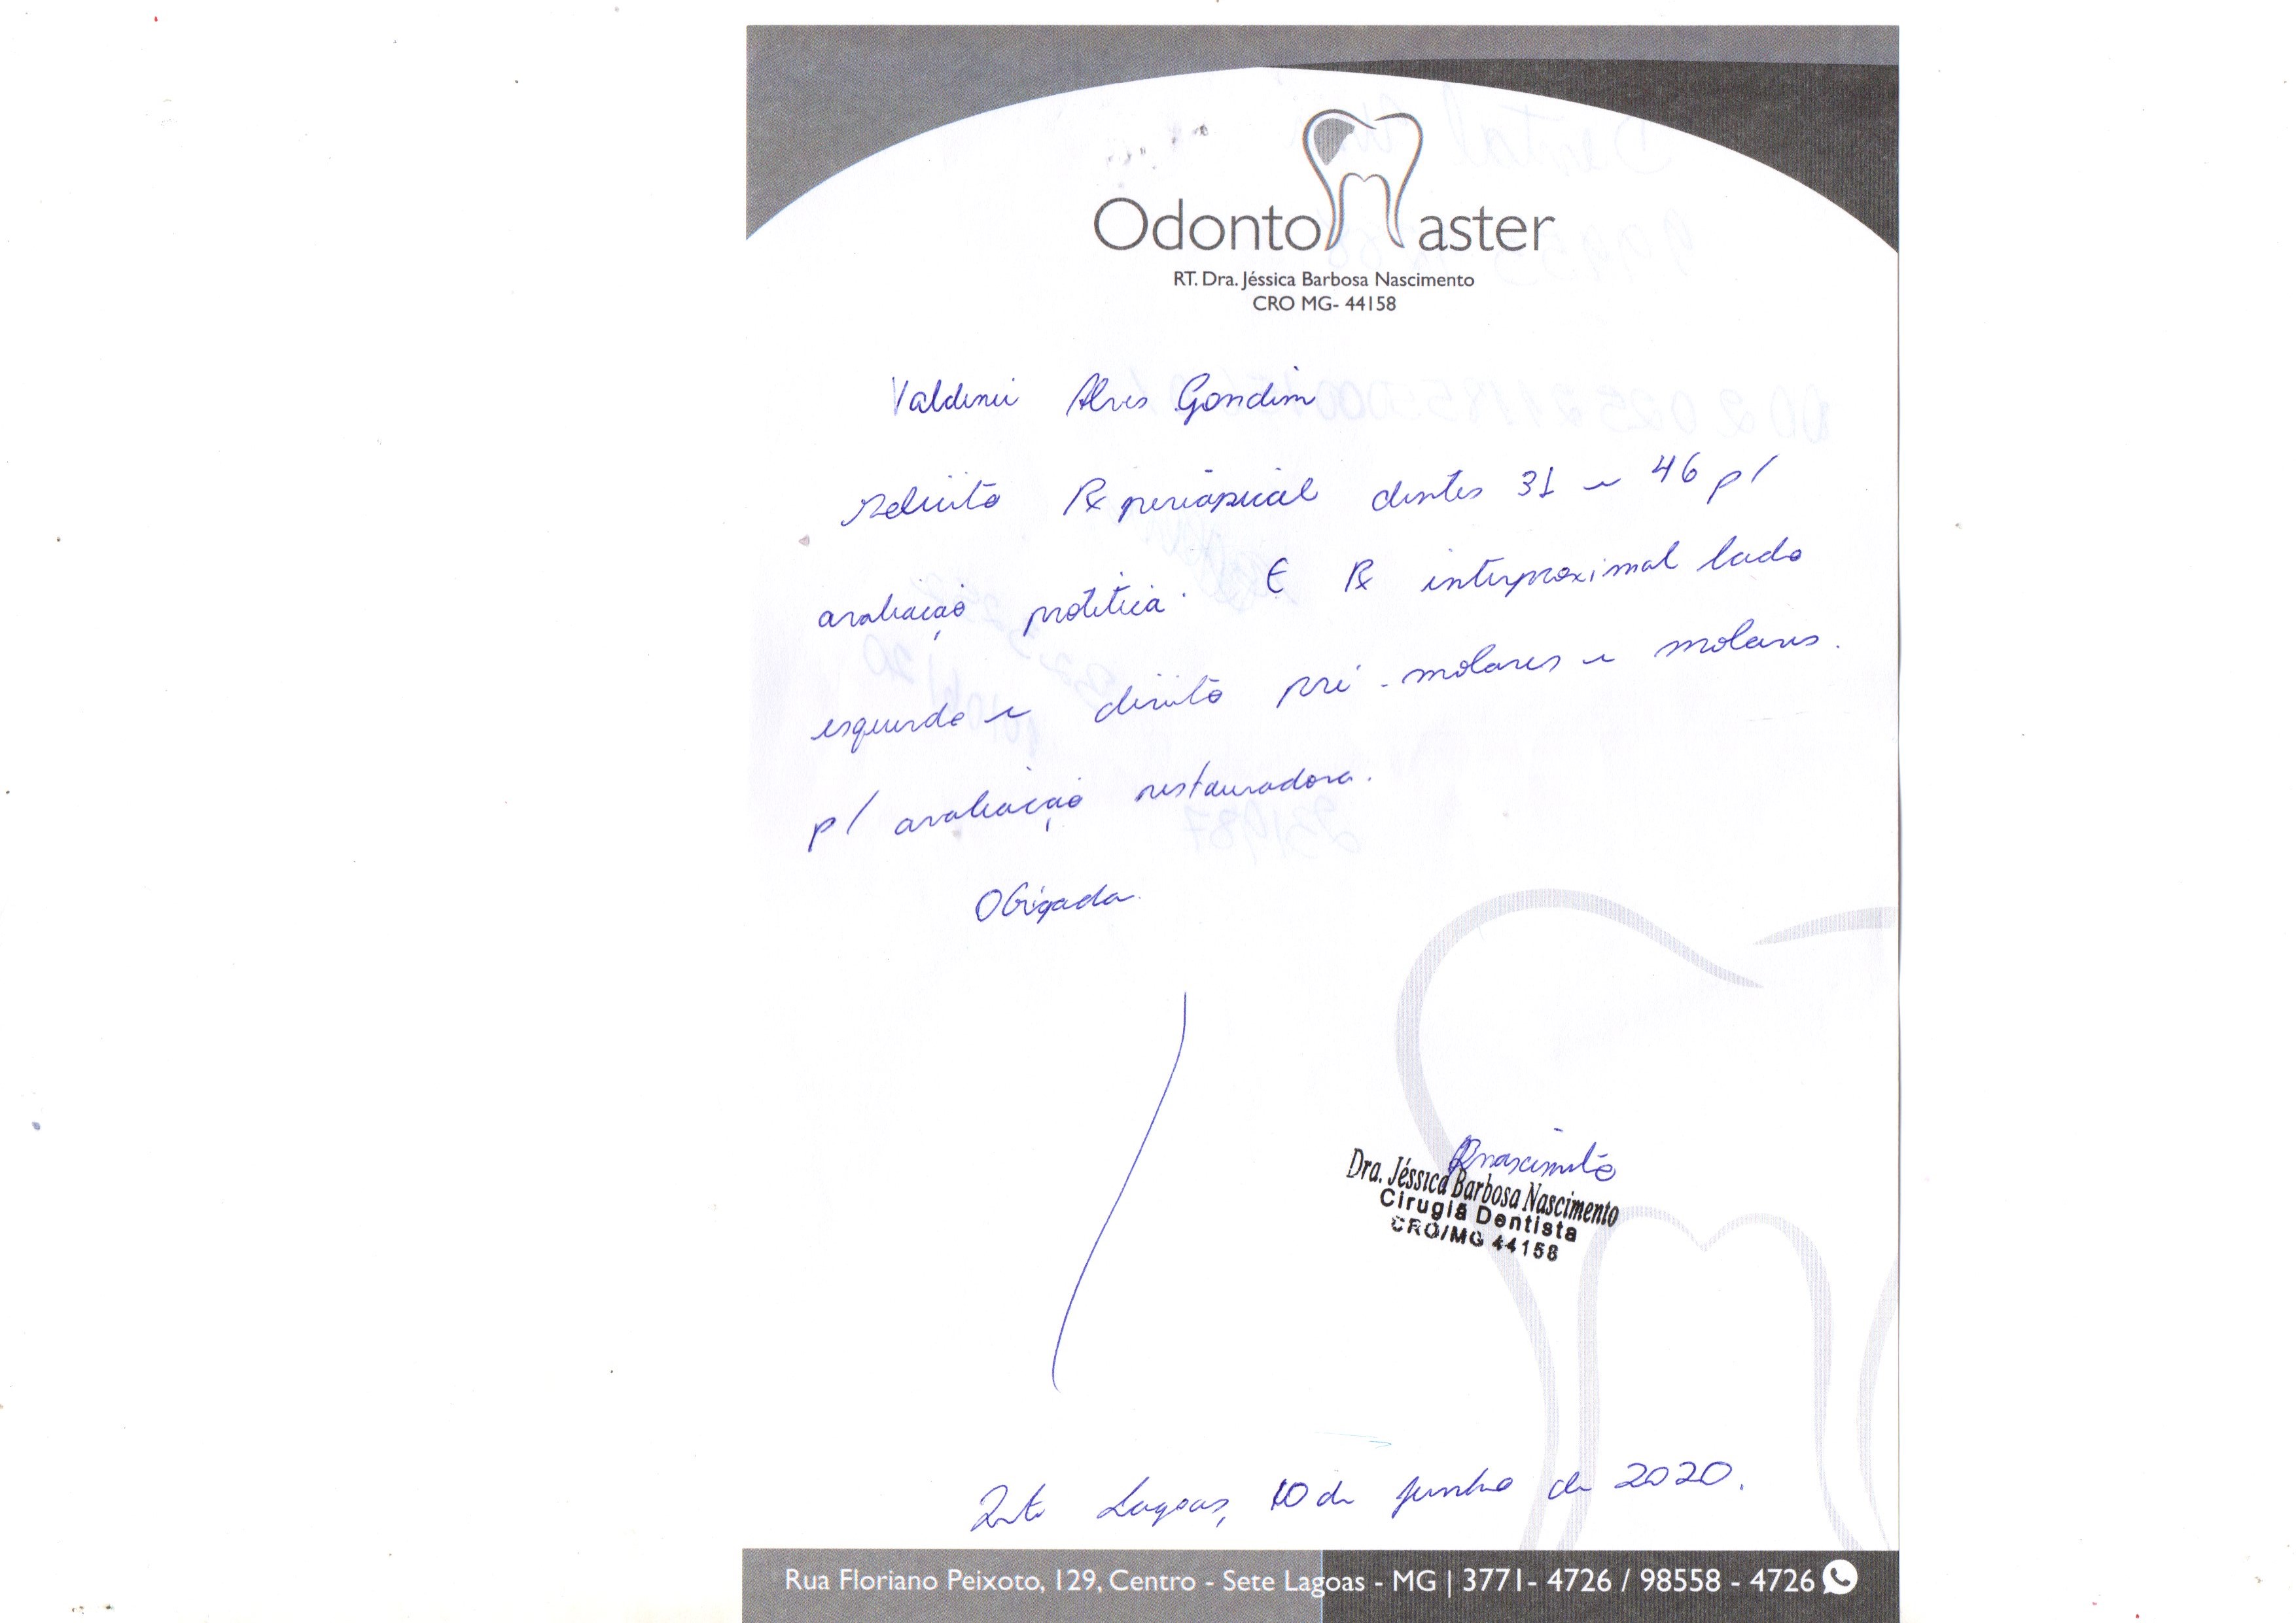 OdontoMaster
RT. Dra. Jéssica Barbosa Nascimento
CRO MG- 44158
Valdinei Alves Gondim
Solicito Rx periapical dentes 31 e 46 p/
avaliação protética. E Rx interproximal lado
esquerdo e direito pré-molares e molares.
p/ avaliação restauradora.
Obrigada
Dra. Jéssica Barbosa Nascimento
Cirugiã Dentista
CRO/MG 44158
Sete Lagoas, 10 de junho de 2020.
Rua Floriano Peixoto, 129, Centro - Sete Lagoas - MG | 3771- 4726 / 98558 - 4726